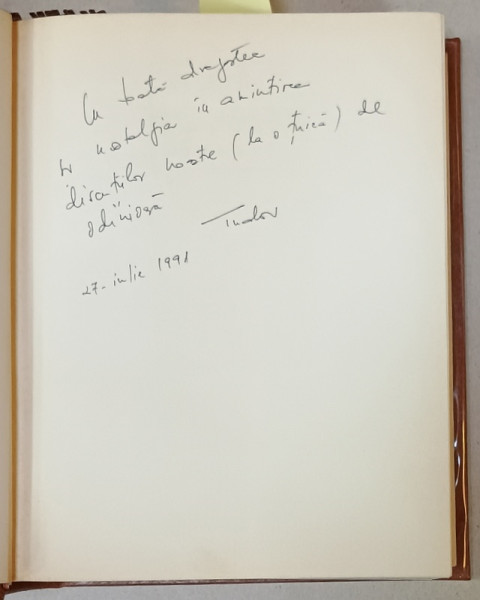 Cu toată dragostea
și nostalgia în amintirea
discuțiilor noastre (la o țuică) de
odinioară
Tudor
27 - iulie 1991